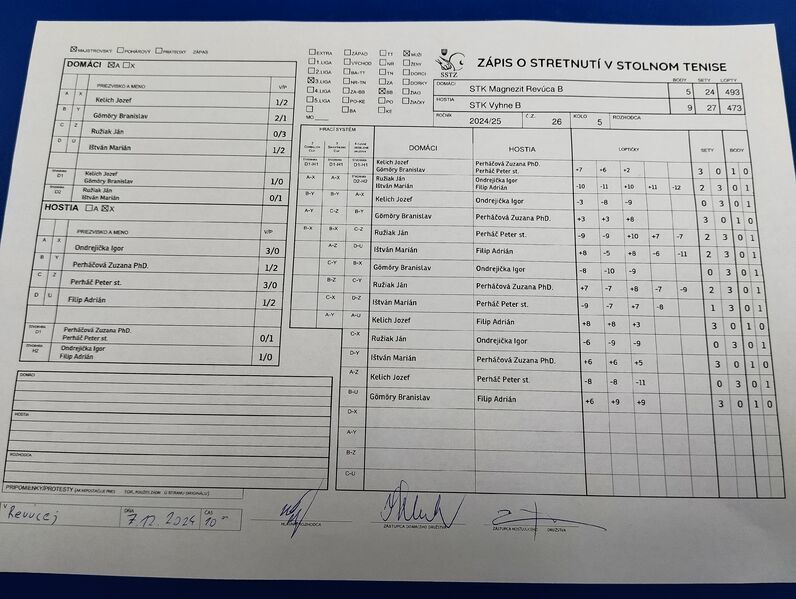 MAJSTROVSKÝ POHÁROVÝ PRIATEĽSKÝ ZÁPAS
EXTRA ZÁPAD TT MUŽI
1.LIGA VÝCHOD NR ŽENY
2.LIGA BA-TT TN DORCI
3.LIGA NR-TN ZA DORKY
4.LIGA ZA-BB BB ŽIACI
5.LIGA PO-KE PO ŽIAČKY
BA KE
MO
SSTZ
ZÁPIS O STRETNUTÍ V STOLNOM TENISE
BODY SETY LOPTY
DOMÁCI STK Magnezit Revúca B 5 24 493
HOSTIA STK Vyhne B 9 27 473
ROČNÍK 2024/25 Č.Z. 26 KOLO 5 ROZHODCA
DOMÁCI A X
PRIEZVISKO A MENO V/P
A X Kelich Jozef 1/2
B Y Gömöry Branislav 2/1
C Z Ružiak Ján 0/3
D U Ištván Marián 1/2
D1 Kelich Jozef
Gömöry Branislav 1/0
D2 Ružiak Ján
Ištván Marián 0/1
HOSTIA A X
PRIEZVISKO A MENO V/P
A X Ondrejička Igor 3/0
B Y Perháčová Zuzana PhD. 1/2
C Z Perháč Peter st. 3/0
D U Filip Adrián 1/2
D1 Perháčová Zuzana PhD.
Perháč Peter st. 0/1
H2 Ondrejička Igor
Filip Adrián 1/0
DOMÁCI
HOSTIA
ROZHODCA
HRACÍ SYSTÉM DOMÁCI HOSTIA LOPTIČKY SETY BODY
D1-H1 D1-H1 D1-H1 Kelich Jozef Perháčová Zuzana PhD.
Gömöry Branislav Perháč Peter st. +7 -6 +2 3 0 1 0
A-X A-X D2-H2 Ružiak Ján Ondrejička Igor
Ištván Marián Filip Adrián -10 -11 +10 +11 -12 2 3 0 1
B-Y B-Y A-X Kelich Jozef Ondrejička Igor -3 -8 -9 0 3 0 1
A-Y C-Z B-Y Gömöry Branislav Perháčová Zuzana PhD. +3 +3 +8 3 0 1 0
B-X B-X C-Z Ružiak Ján Perháč Peter st. -9 -9 +10 +7 -7 2 3 0 1
A-Z D-U Ištván Marián Filip Adrián +8 -5 +8 -6 -11 2 3 0 1
C-Y B-X Gömöry Branislav Ondrejička Igor -8 -10 -9 0 3 0 1
B-Z C-Y Ružiak Ján Perháčová Zuzana PhD. +7 -7 +8 -7 -9 2 3 0 1
C-X D-Z Ištván Marián Perháč Peter st. -9 -7 +7 -8 1 3 0 1
A-Y A-U Kelich Jozef Filip Adrián +8 +8 +3 3 0 1 0
C-X Ružiak Ján Ondrejička Igor -6 -9 -9 0 3 0 1
D-Y Ištván Marián Perháčová Zuzana PhD. +6 +6 +5 3 0 1 0
A-Z Kelich Jozef Perháč Peter st. -8 -8 -11 0 3 0 1
B-U Gömöry Branislav Filip Adrián +6 +9 +9 3 0 1 0
D-X
A-Y
B-Z
C-U
PRIPOMIENKY/PROTESTY
V Revúcej DŇA 7.12.2024 ČAS 10
HLAVNÝ ROZHODCA ZÁSTUPCA DOMÁCEHO DRUŽSTVA ZÁSTUPCA HOSŤUJÚCEHO DRUŽSTVA